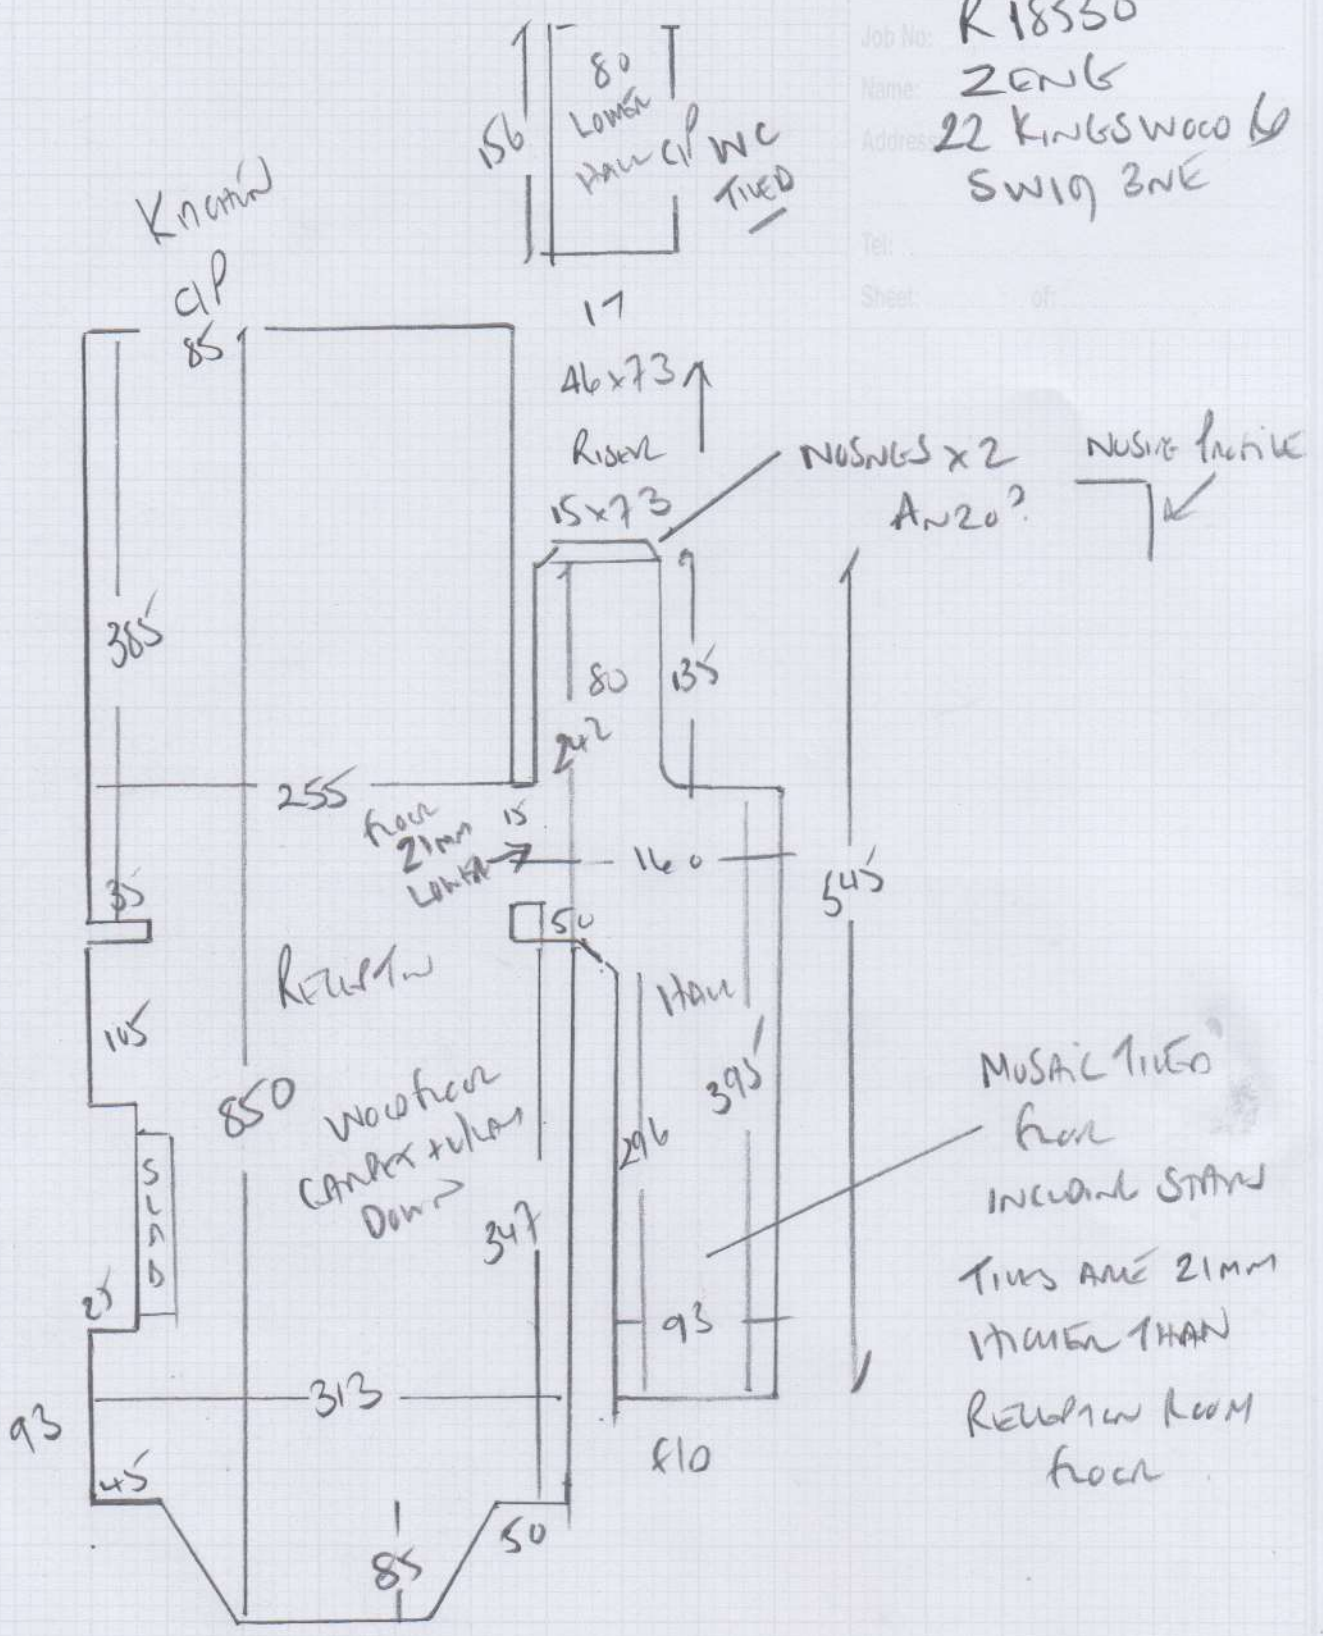 Job No: R 18550
Name: ZENG
Address: 22 KINGSWOOD RD
SW19 3NE
Tel:
Sheet: of:
156
80
LOWER
HALL C/P
WC
TILED
KITCHEN
C/P
85
17
46x73
RISER
15x73
NOSNGS x 2
AN20?
NOSING PROFILE
385
80
135
242
255
FLOOR
21mm
LOWER
15
160
545
35
50
RECEPTION
HALL
105
850
WOOD FLOOR
CARPET + U/LAY
DOWN
395
296
347
SLAB
MOSAIC TILED
FLOOR
INCLUDING STAIRS
TILES ARE 21MM
HIGHER THAN
RECEPTION ROOM
FLOOR
25
93
313
93
45
F/D
85
50